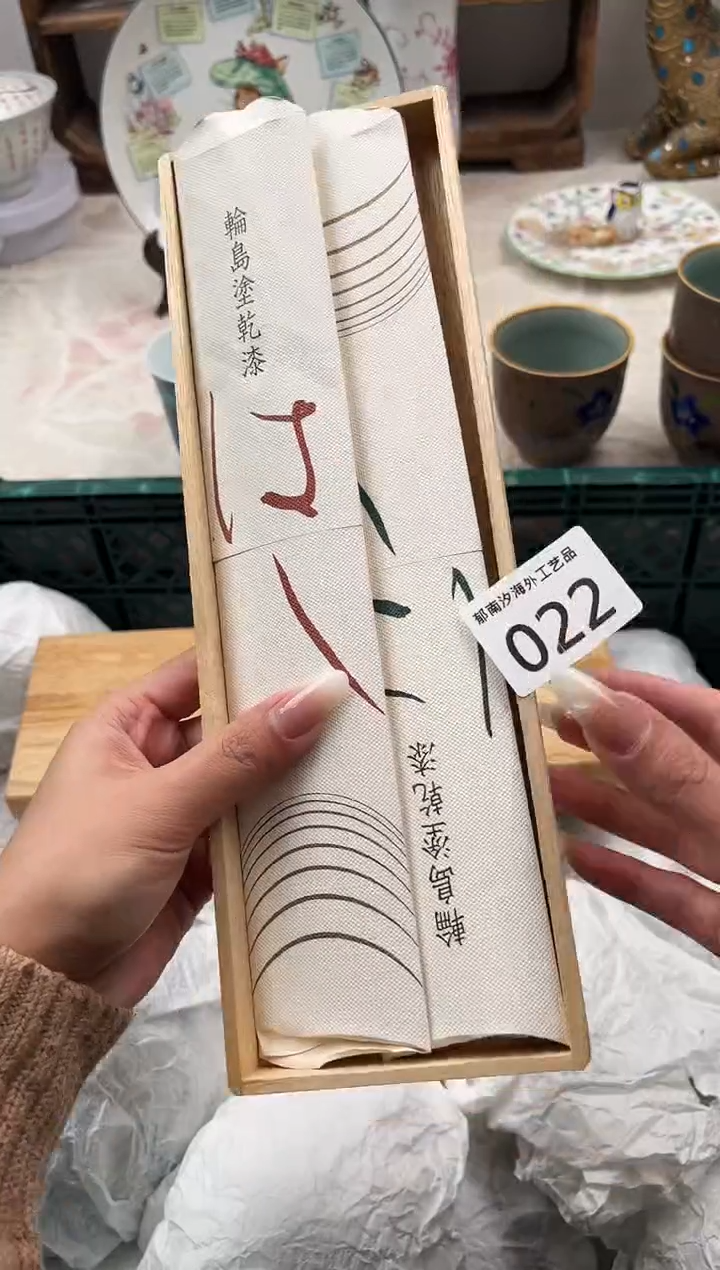 輪島塗乾漆
はし
はし
輪島塗乾漆
郁南汐海外工艺品
022